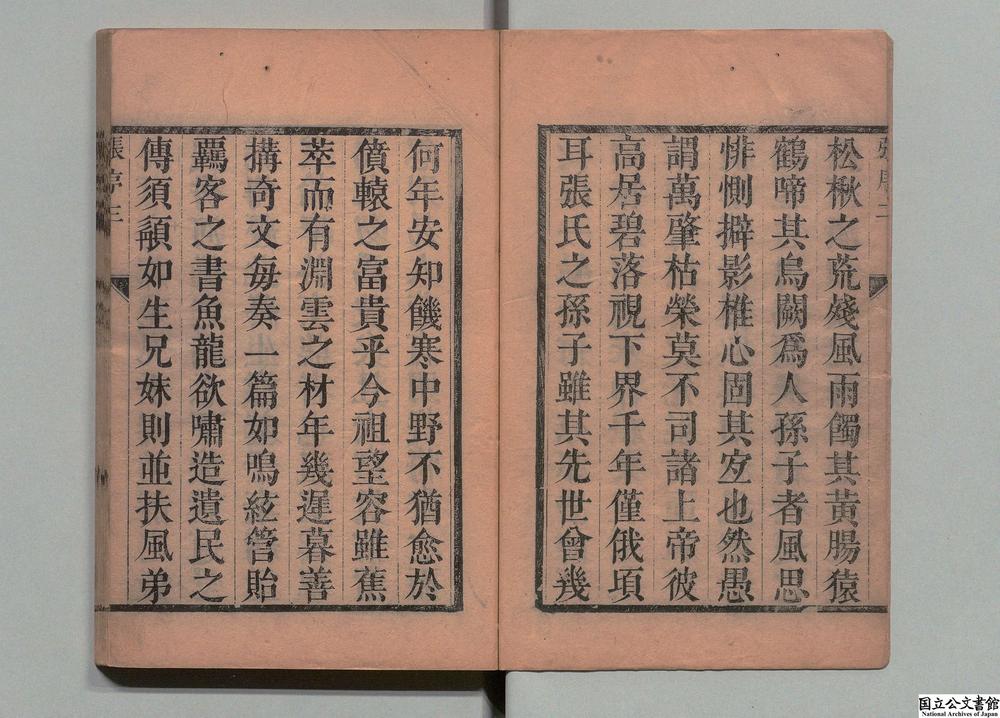 松楸之荒殘風雨髑其黃腸猿
鶴啼其烏闕爲人孫子者風思
悱惻擗影椎心固其宜也然愚
謂萬肇枯榮莫不司諸上帝彼
高居碧落視下界千年僅俄頃
耳張氏之孫子雖其先世曾幾
何年安知饑寒中野不猶愈於
僨轅之富貴乎今祖望容雖蕉
萃而有淵雲之材年幾遲暮善
搆奇文每奏一篇如鳴絃管貽
羈客之書魚龍欲嘯造遺民之
傳須顙如生兄妹則並扶風弟
張序三
国立公文書館
National Archives of Japan